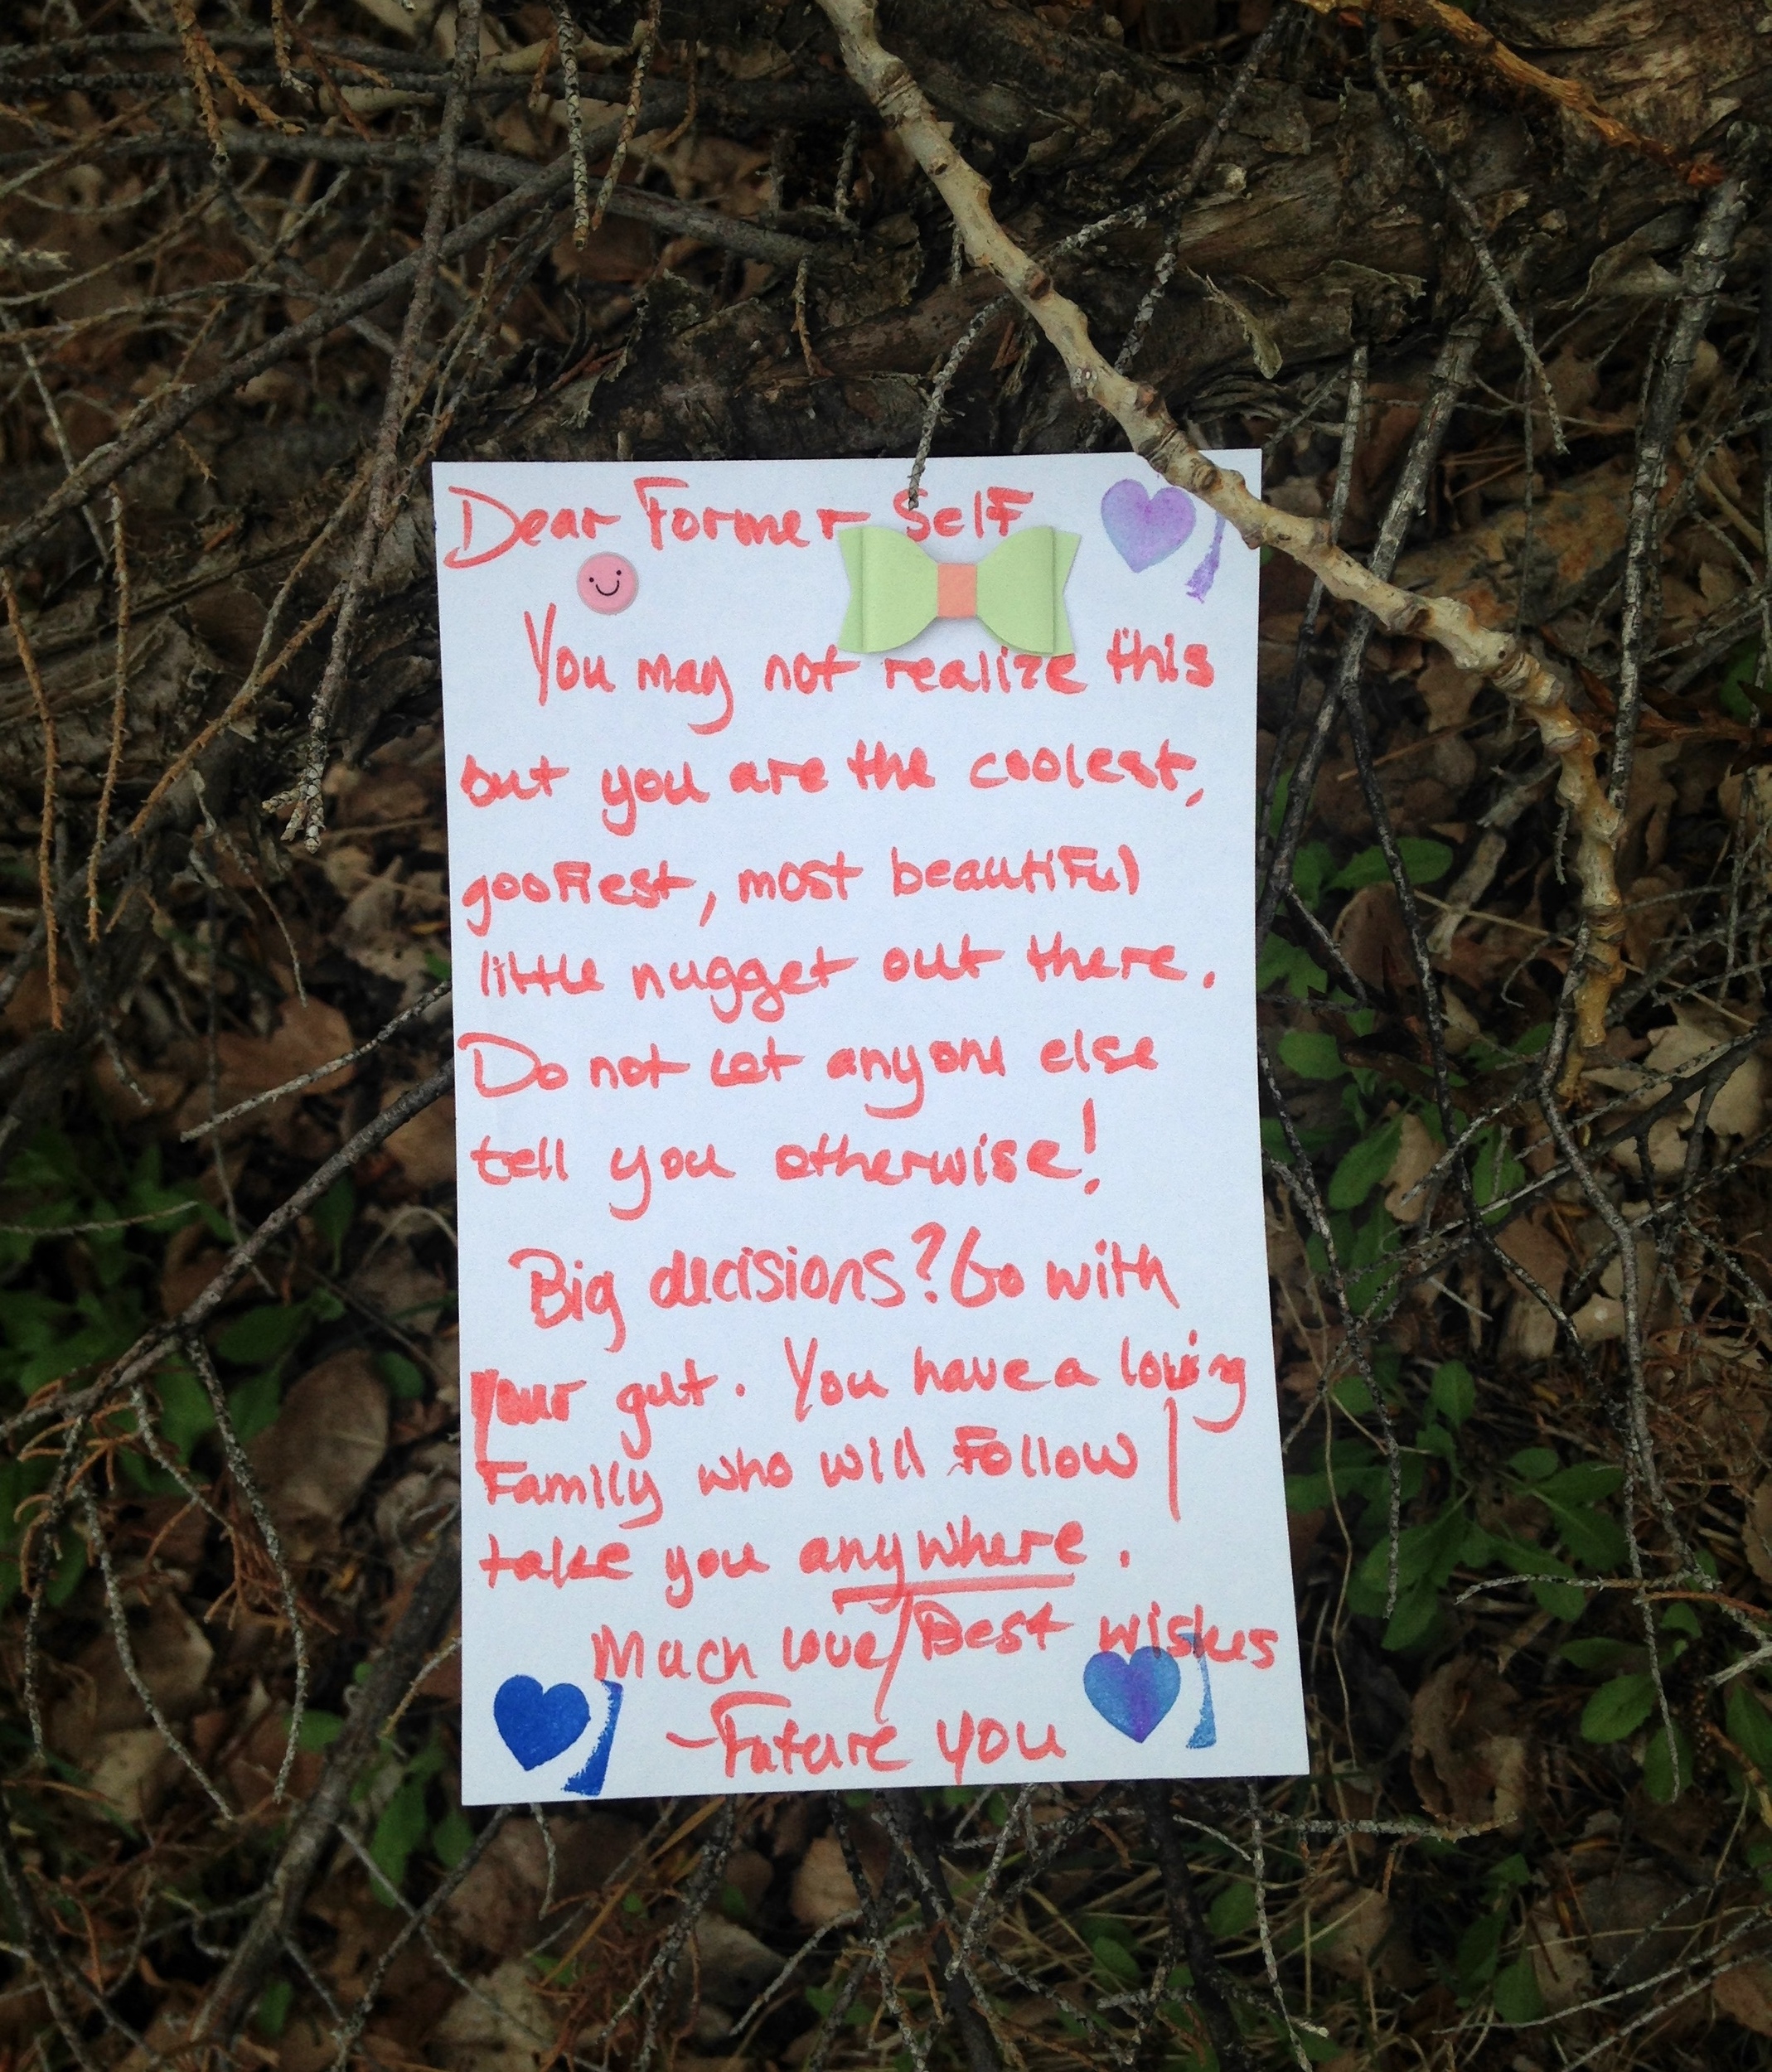 Dear Former Self
You may not realize this
but you are the coolest,
goofiest, most beautiful
little nugget out there.
Do not let anyone else
tell you otherwise!
Big decisions? Go with
your gut. You have a loving
Family who will Follow /
take you anywhere.
Much love/Best wishes
-Future you